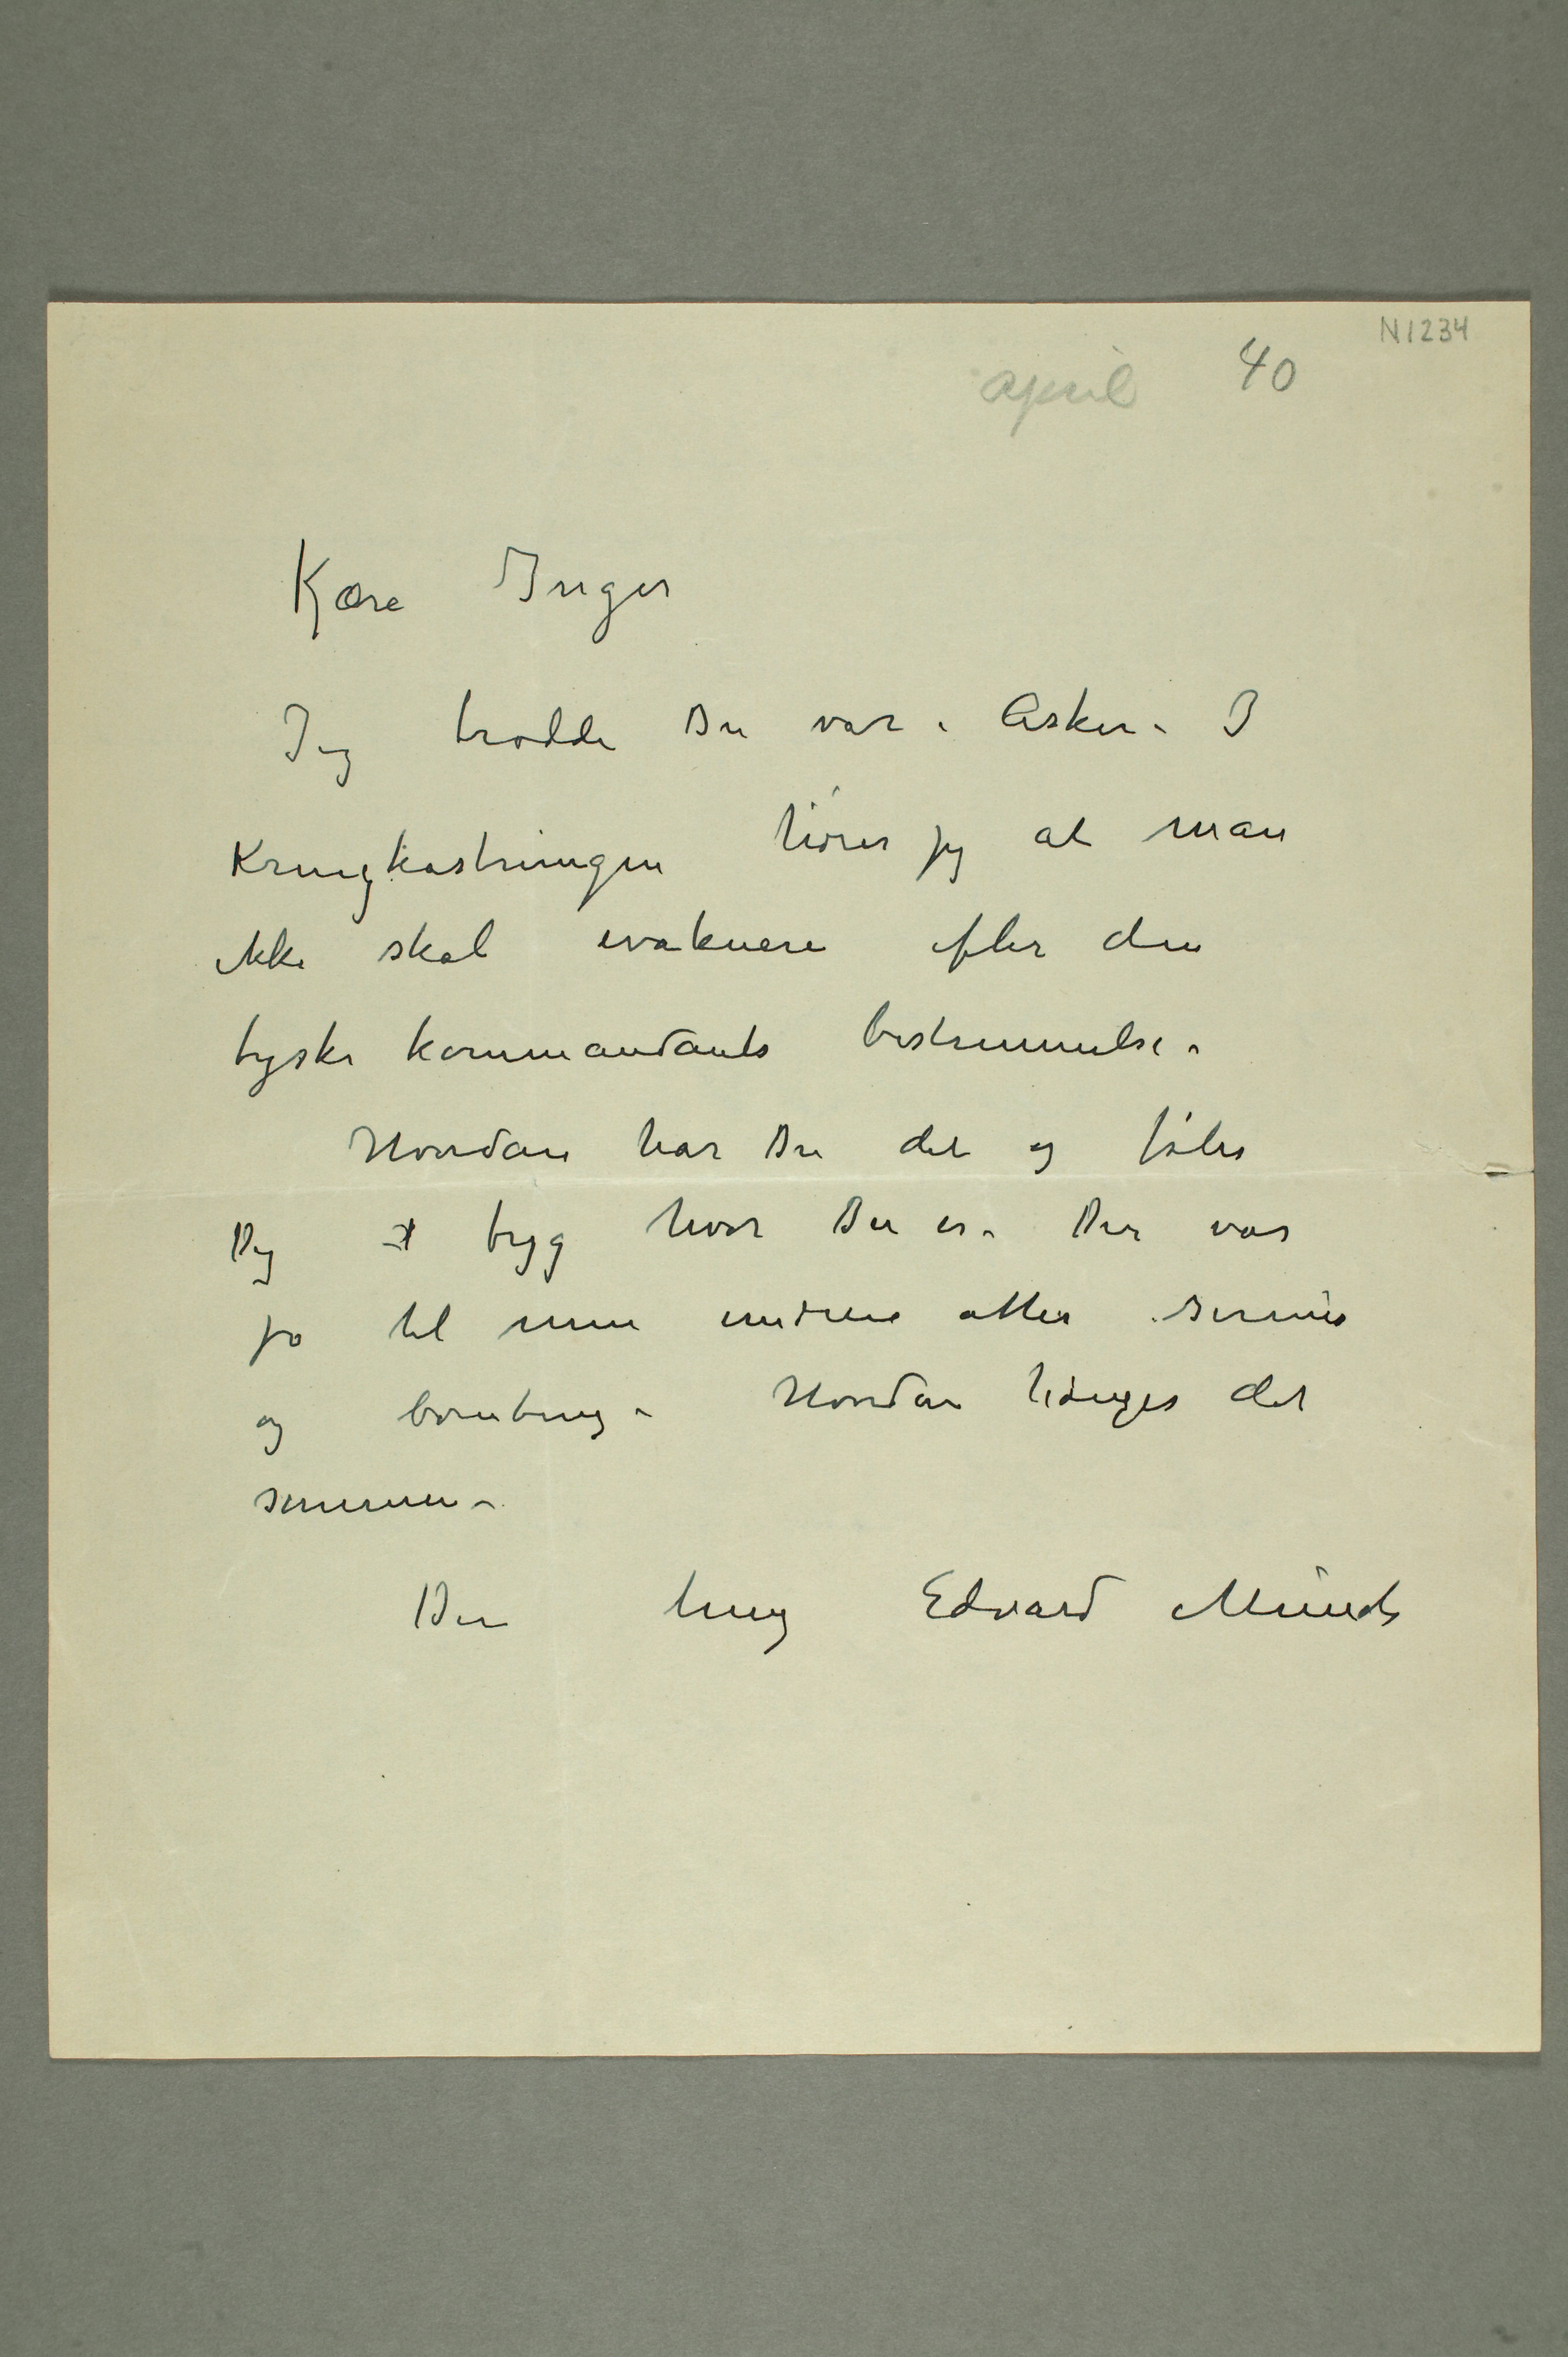 N1234
april 40
Kjære Inger
Jeg trodde Du var i Asker. I
Kringkastningen hører jeg at man
ikke skal evakuere efter den
tyske kommandants bestemmelse.
Hvordan har Du det og føler
Dig tryg hvor Du er. Der var
jo til min undren atter
og bombing. Hvordan hænger det
sammen.
Din Edvard Munch